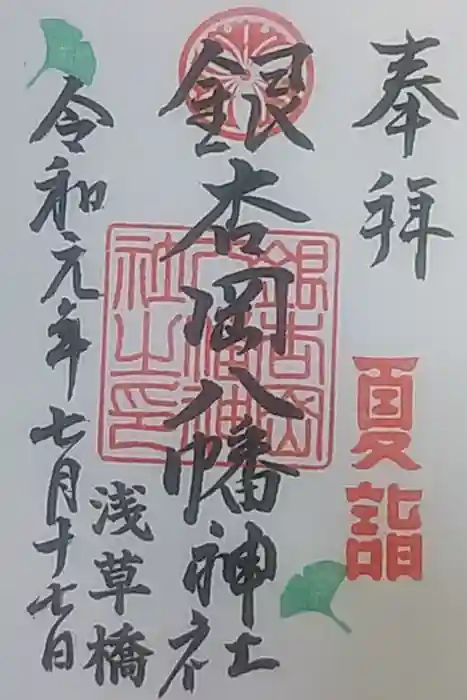 奉拝
夏詣
銀杏岡八幡神社
銀杏岡八幡神社之印
浅草橋
令和元年七月十七日